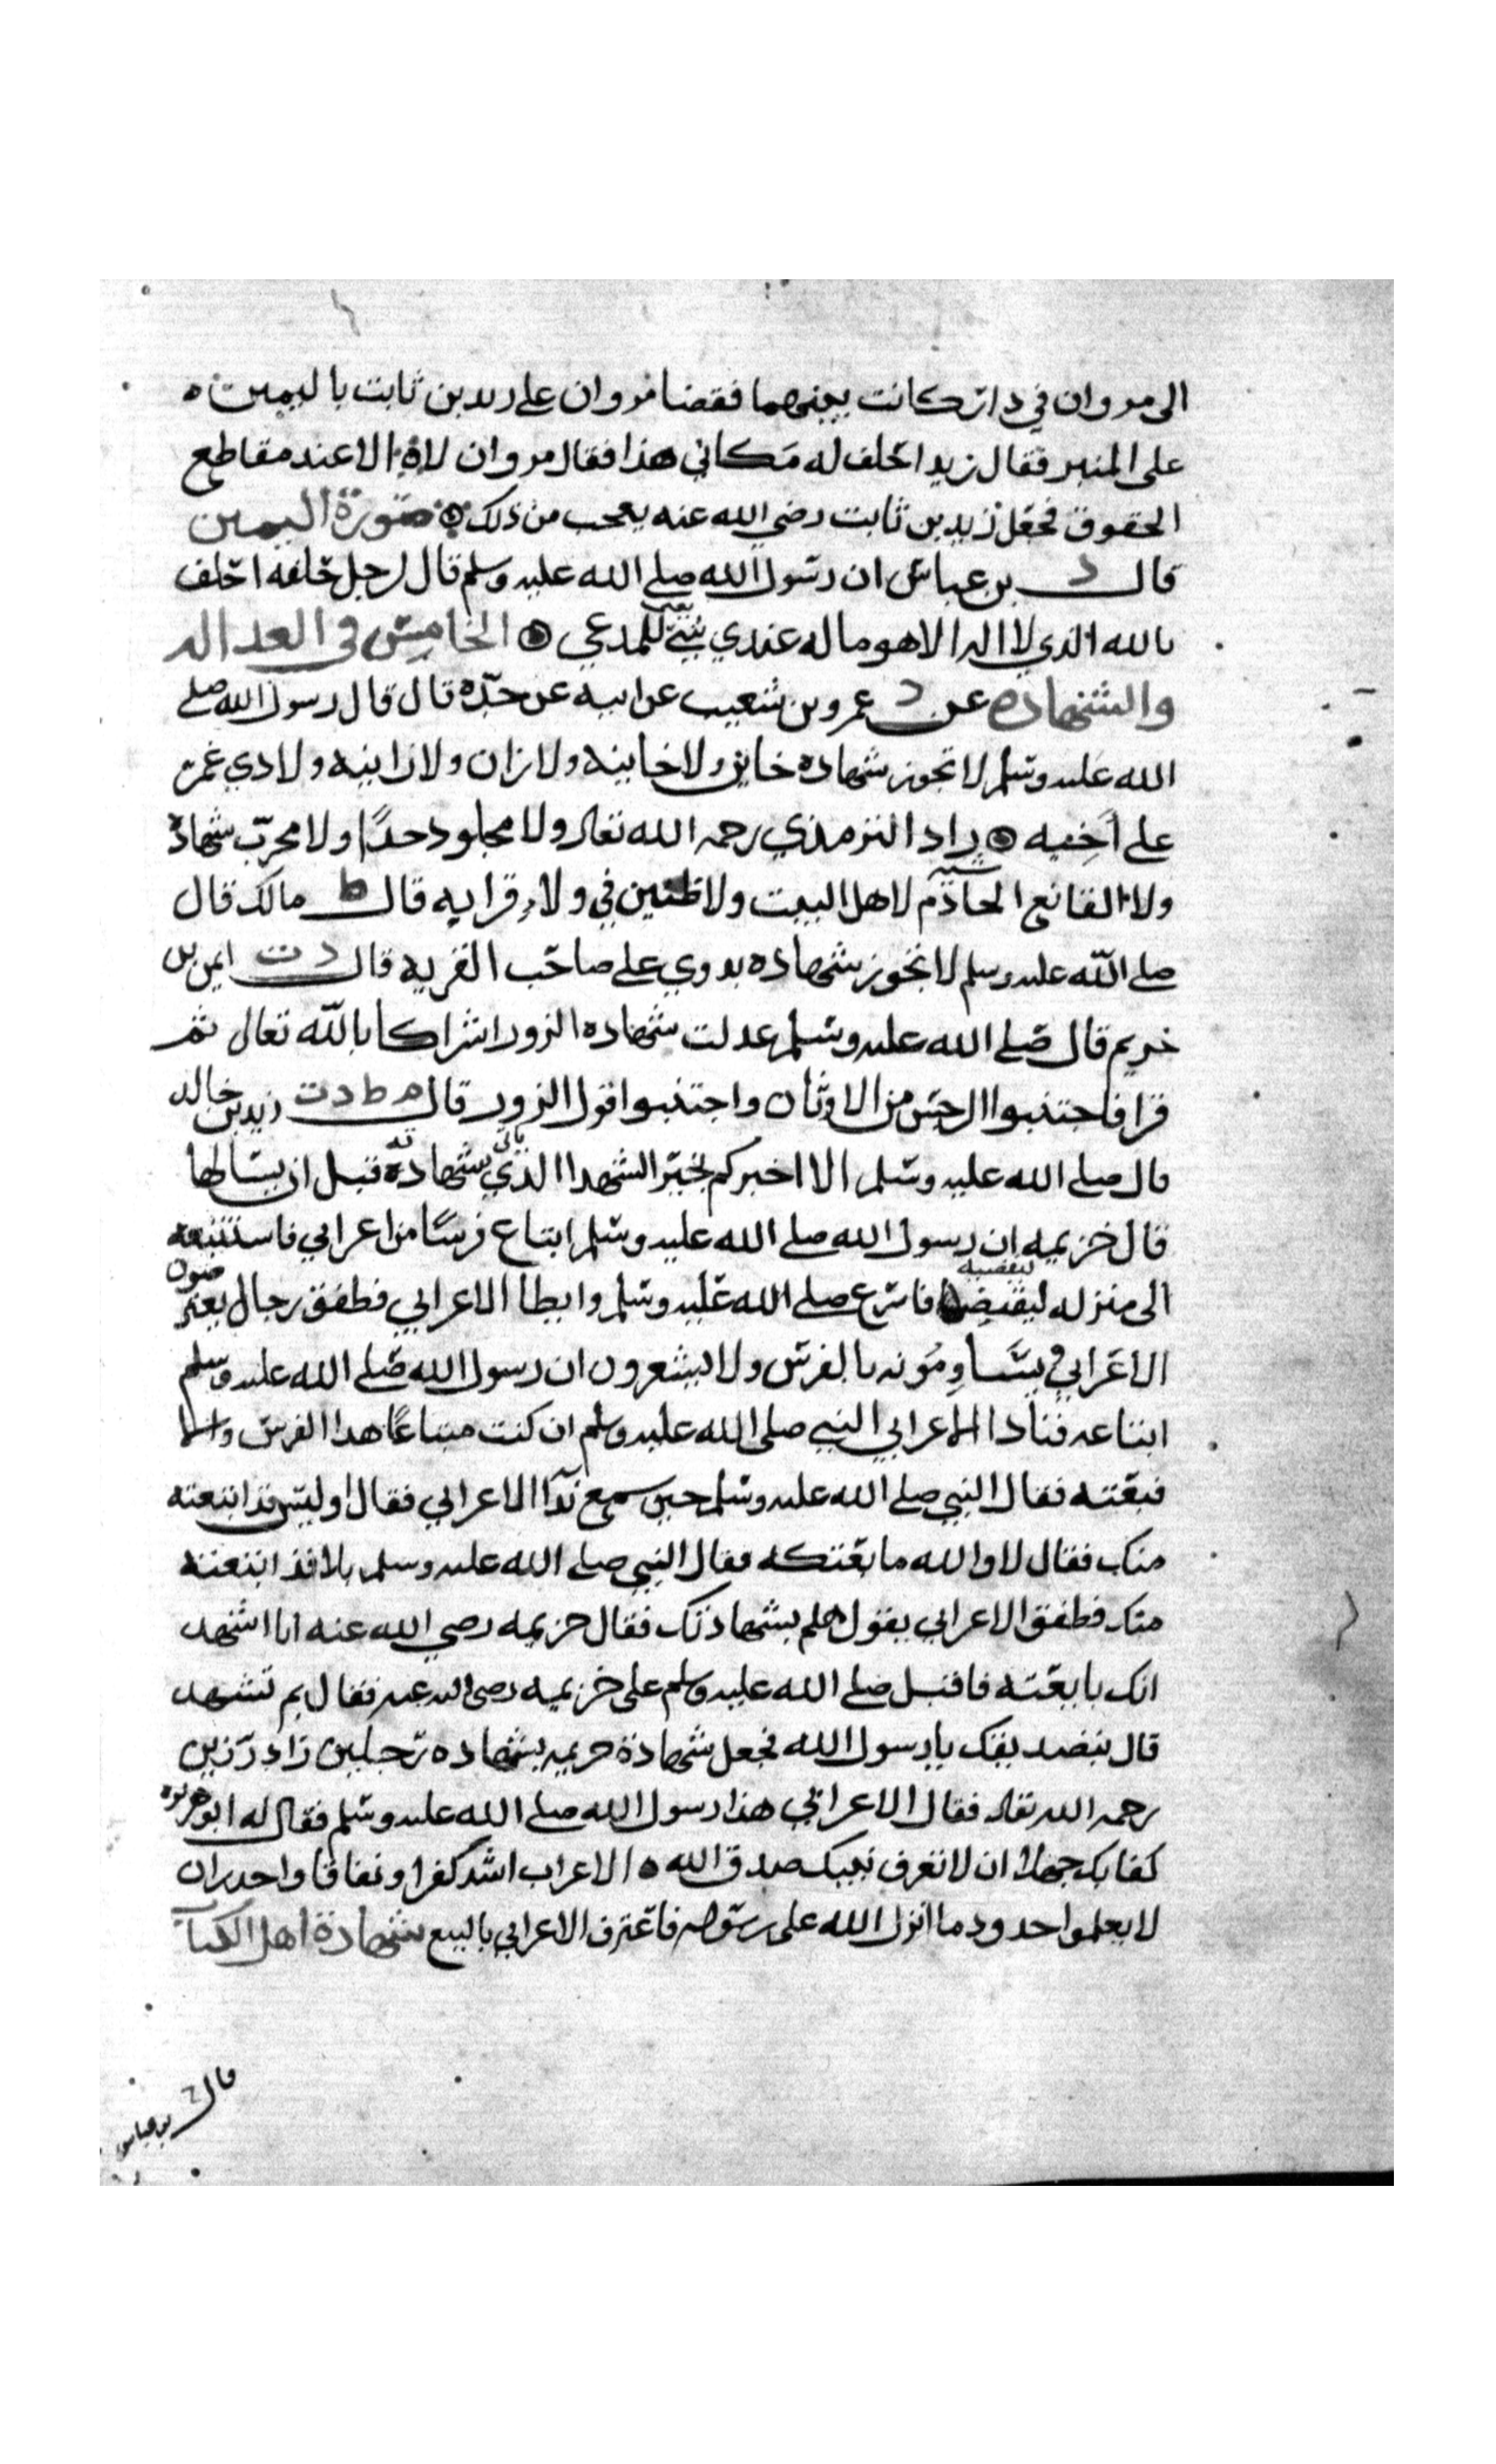 الى مروان في دار كانت بينهما فقضا مروان على زيد بن ثابت باليمين
على المنبر فقال زيد احلف له مكاني هذا فقال مروان لا الا عند مقاطع
الحقوق فجعل زيد بن ثابت رضي الله عنه يعجب من ذلك صورة اليمين
قال د بن عباس ان رسول الله صلى الله عليه وسلم قال لرجل حلفه احلف
بالله الذي لا اله الا هو ما له عندي شي يعني للمدعي الخامس في العداله
والشهاده عن د عمرو بن شعيب عن ابيه عن جده قال قال رسول الله صلى
الله عليه وسلم لا تجوز شهاده خاين ولا خاينه ولا زان ولا زانيه ولا ذي غمر
على اخيه زاد الترمذي رحمه الله تعالى ولا مجلود حدًا ولا مجرب شهادة
ولا القانع الخادم لاهل البيت ولا ظنين في ولاء قرابه قال ط مالك قال
صلى الله عليه وسلم لا تجوز شهاده بدوي على صاحب القريه قال د ت ايمن بن
خريم قال صلى الله عليه وسلم عدلت شهاده الزور اشراكا بالله تعالى ثم
قرا فاجتنبوا الرجس من الاوثان واجتنبوا قول الزور قال م ط د ت زيد بن خالد
قال صلى الله عليه وسلم الا اخبركم بخير الشهدا الذي ياتي بشهادته قبل ان يسالها
قال خزيمه ان رسول الله صلى الله عليه وسلم ابتاع فرسًا من اعرابي فاستتبعه
الى منزله ليقبضه ليقضيه فاسرع صلى الله عليه وسلم وابطا الاعرابي فطفق رجال يعترضون
الاعرابي يساومونه بالفرس ولا يشعرون ان رسول الله صلى الله عليه وسلم
ابتاعه فنادا الاعرابي النبي صلى الله عليه وسلم ان كنت مبتاعًا هذا الفرس والا
فبعته فقال النبي صلى الله عليه وسلم حين سمع ندآ الاعرابي فقال اوليس قد ابتعته
منك فقال لا والله ما بعتكه فقال النبي صلى الله عليه وسلم بلا قد ابتعته
منك فطفق الاعرابي يقول هلم بشهادتك فقال خزيمه رضي الله عنه انا اشهد
انك بايعته فاقبل صلى الله عليه وسلم على خزيمه رضى الله عنه فقال بم تشهد
قال بتصديقك يا رسول الله فجعل شهادة خزيمه بشهاده رجلين زاد رزين
رحمه الله تعالى فقال الاعرابي هذا رسول الله صلى الله عليه وسلم فقال له ابو هريره
كفا بك جهلا ان لا تعرف نبيك صدق الله الاعراب اشد كفرا ونفاقا واجدر ان
لا يعلموا حدود ما انزل الله على رسوله فاعترف الاعرابي بالبيع شهادة اهل الكتاب
قال بن عباس